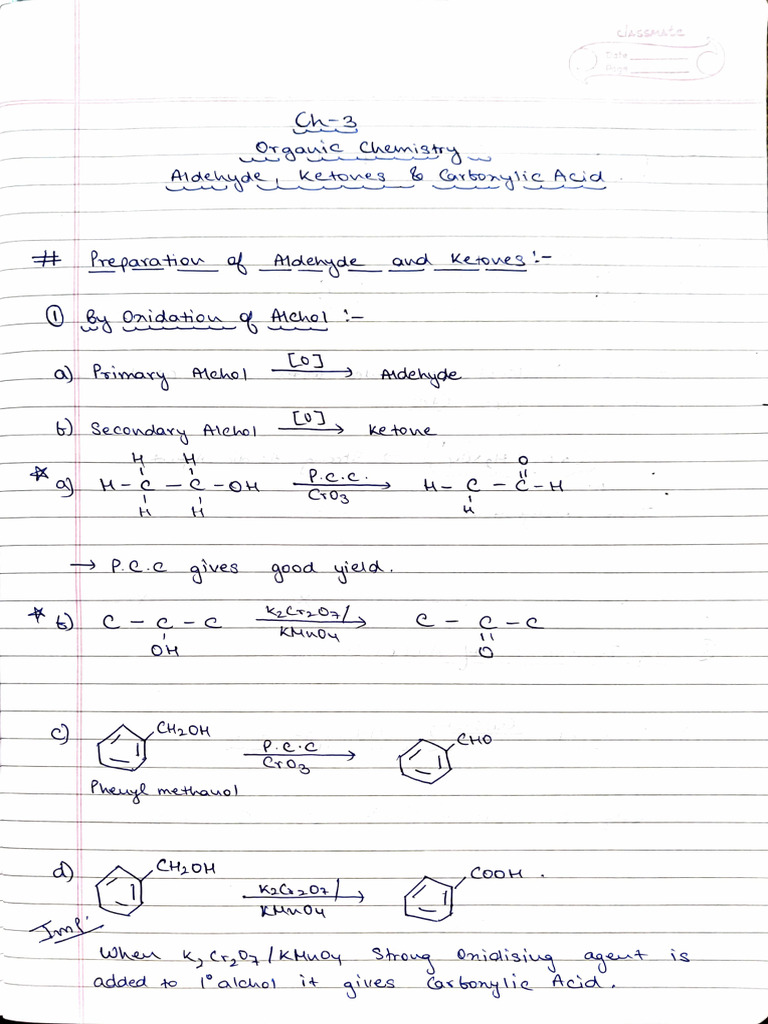 classmate
Date
Page
Ch-3
Organic Chemistry
Aldehyde, Ketones & Carboxylic Acid.
# Preparation of Aldehyde and Ketones:-
① By Oxidation of Alchol :-
a) Primary Alchol [O] → Aldehyde
b) Secondary Alchol [O] → Ketone
H H O
☆ a) H - C - C - OH P.C.C. / CrO3 → H - C - C - H
H H H
→ P.C.C gives good yield.
☆ b) C - C - C K2Cr2O7/ KMnO4 → C - C - C
OH O
c) CH2OH P.C.C CrO3 → CHO
Phenyl methanol
d) CH2OH K2Cr2O7/ KMnO4 → COOH .
Imp.
When K2Cr2O7/KMnO4 Strong Oxidising agent is
added to 1° alchol it gives Carboxylic Acid.